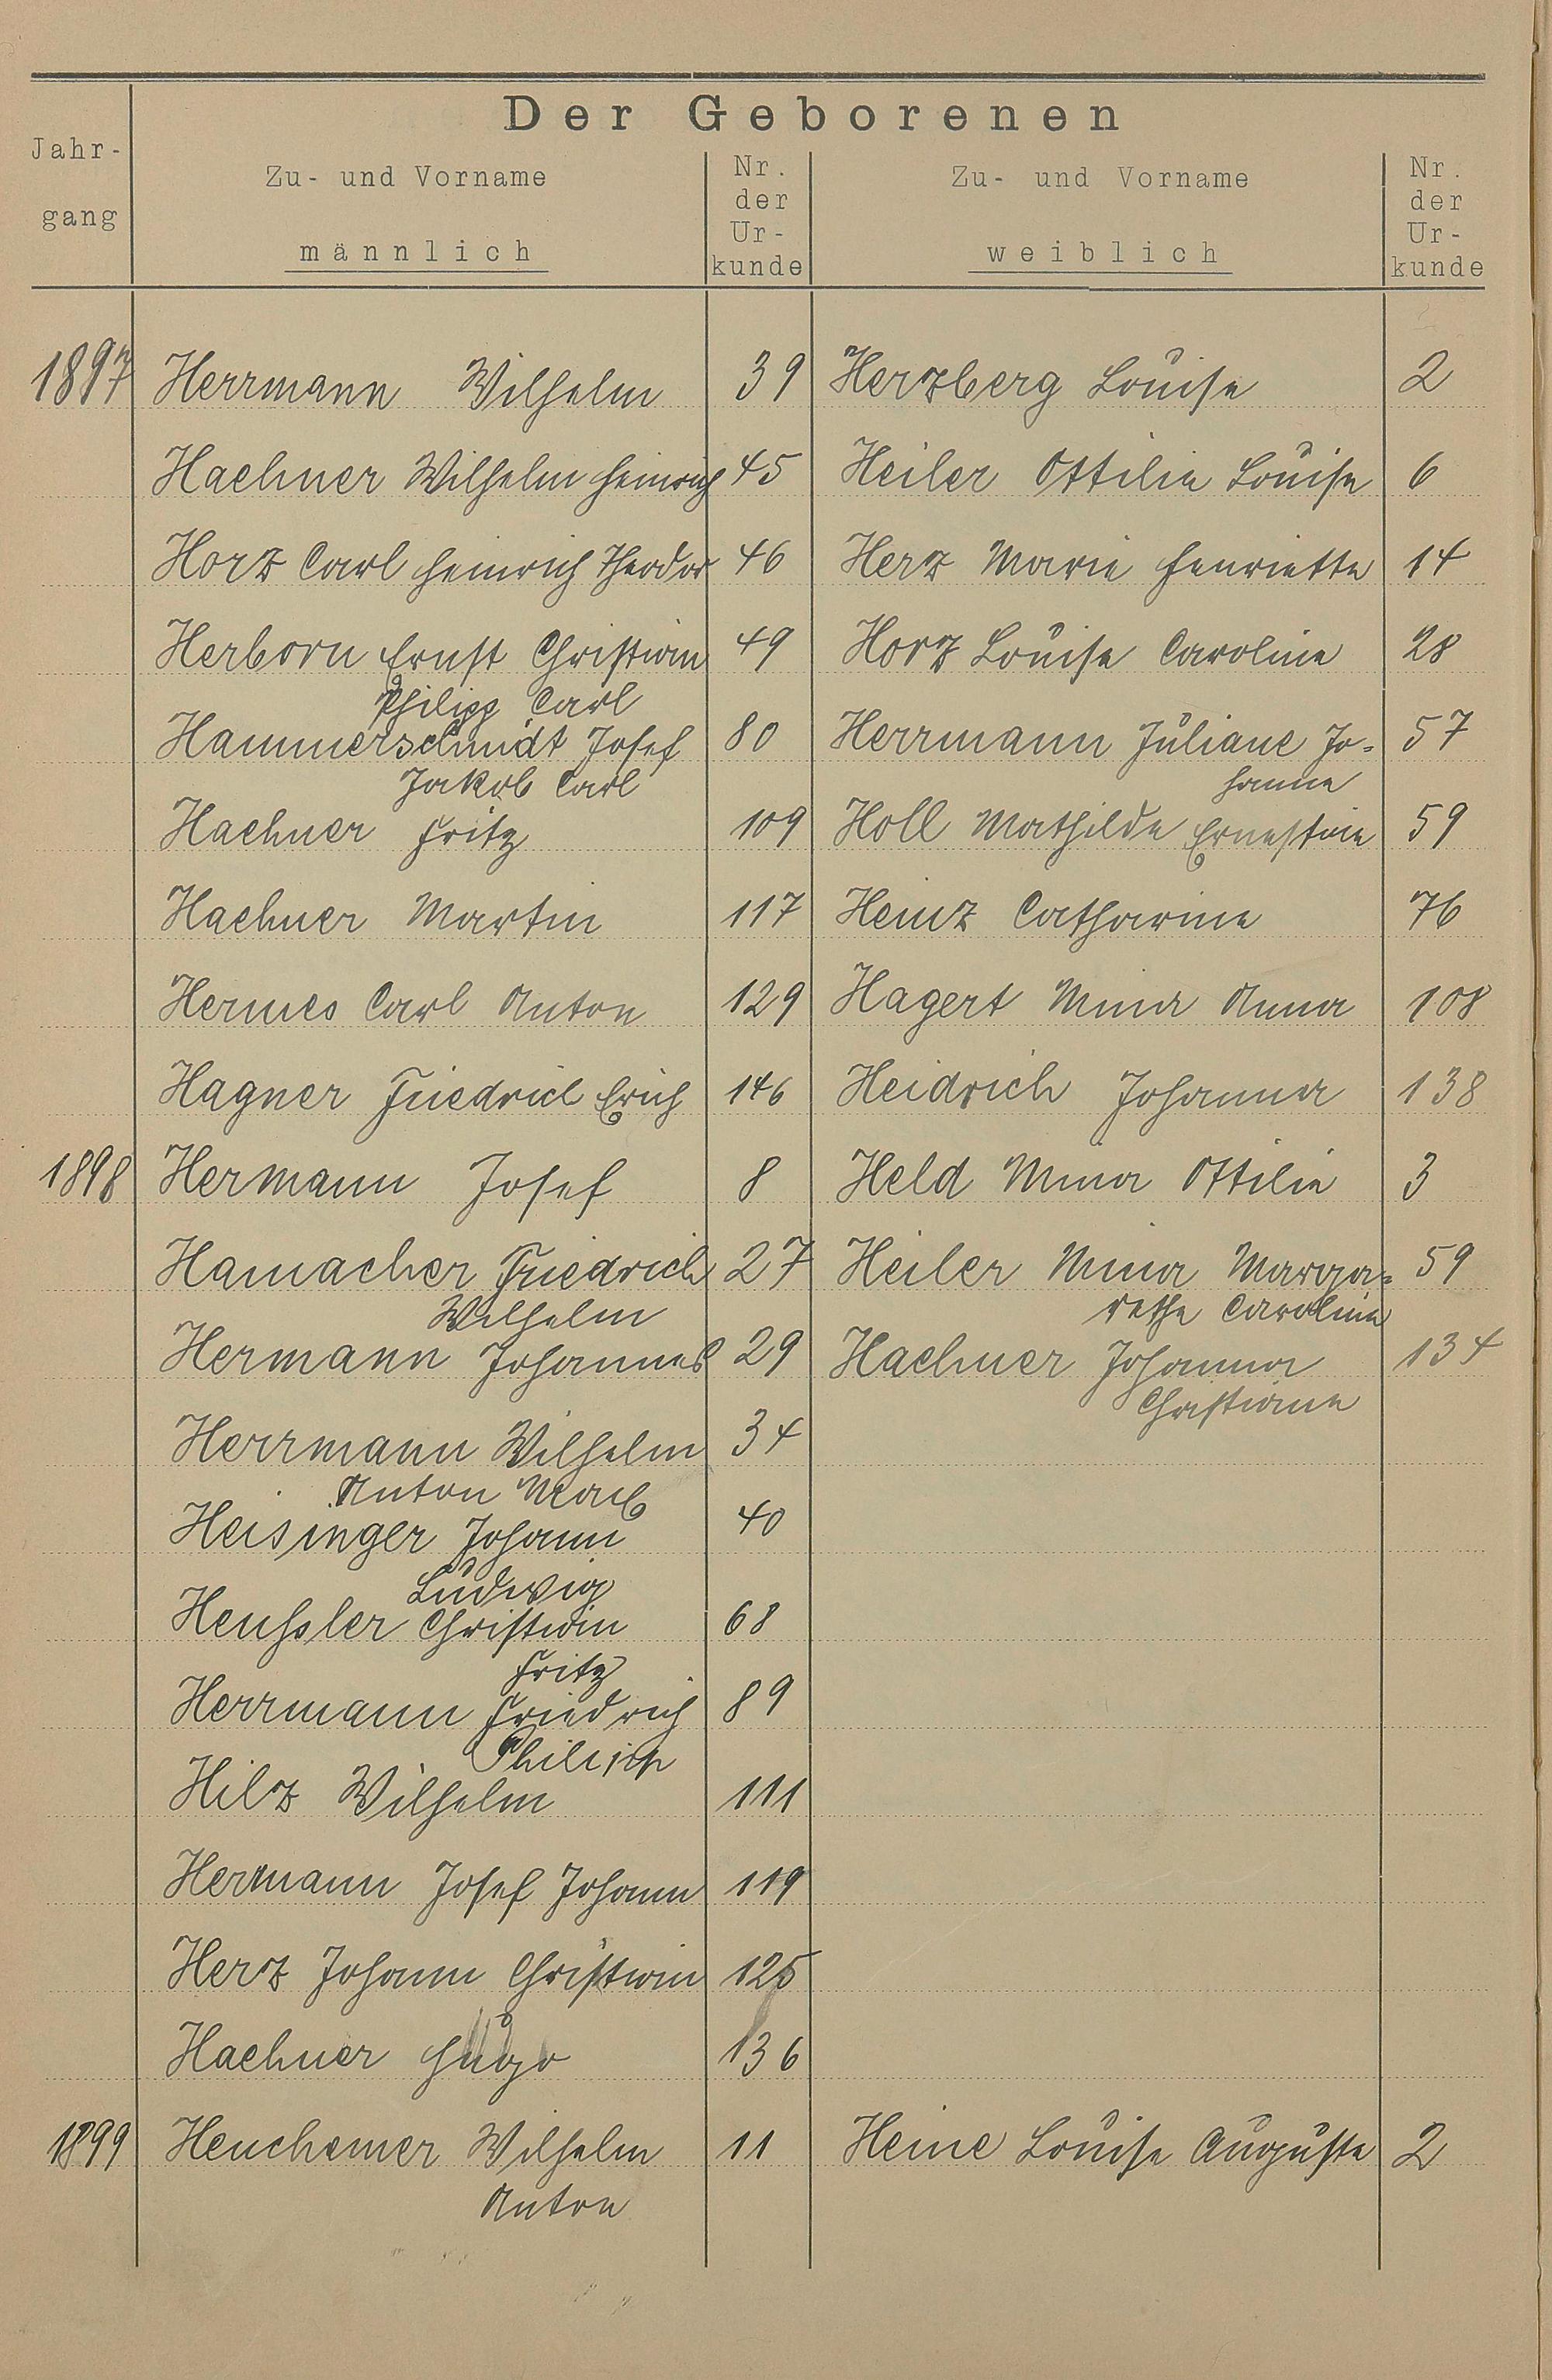 Der Geborenen
Jahr-
gang
Zu- und Vorname
männlich
Nr.
der
Ur-
kunde
Zu- und Vorname
weiblich
Nr.
der
Ur-
kunde
1897 Herrmann Wilhelm 39 Herzberg Louise 2
Haehner Wilhelm Heinrich 45 Heiler Ottilie Louise 6
Horz Carl Heinrich Theodor 46 Herz Marie Henriette 14
Herborn Ernst Christian 49 Horz Louise Caroline 28
Philipp Carl
Hammerschmidt Josef 80 Herrmann Juliane Jo= 57
Jakob Carl hanne
Haehner Fritz 109 Holl Mathilde Ernestine 59
Haehner Martin 117 Heinz Catharine 76
Hermes Carl Anton 129 Hagert Mina Anna 108
Hagner Friedrich Erich 146 Heidrich Johanna 138
1898 Hermann Josef 8 Held Mina Ottilie 3
Hamacher Friedrich 27 Heiler Mina Marga= 59
Wilhelm rethe Caroline
Hermann Johannes 29 Haehner Johanna 134
Christiane
Herrmann Wilhelm 34
Anton
Heisinger Johann 40
Ludwig
Heussler Christian 68
Fritz
Herrmann Friedrich 89
Philipp
Hilz Wilhelm 111
Hermann Josef Johann 119
Herz Johann Christian 125
Haehner Hugo 136
1899 Henchemer Wilhelm 11 Heine Louise Auguste 2
Anton